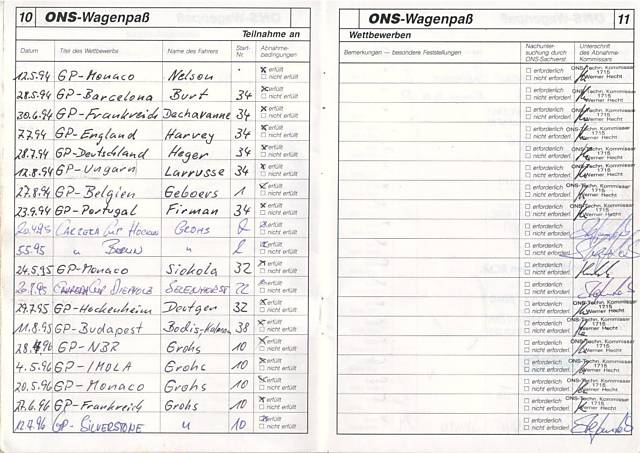 10 ONS-Wagenpaß
Teilnahme an
Datum Titel des Wettbewerbs Name des Fahrers Start-Nr. Abnahme-bedingungen
12.5.94 GP-Monaco Nelson erfüllt nicht erfüllt
28.5.94 GP-Barcelona Burt 34 erfüllt nicht erfüllt
30.6.94 GP-Frankreich Dacharanne 34 erfüllt nicht erfüllt
7.7.94 GP-England Harvey 34 erfüllt nicht erfüllt
28.7.94 GP-Deutschland Heger 34 erfüllt nicht erfüllt
12.8.94 GP-Ungarn Larrusse 34 erfüllt nicht erfüllt
27.8.94 GP-Belgien Geboers 1 erfüllt nicht erfüllt
23.9.94 GP-Portugal Firman 34 erfüllt nicht erfüllt
CARRERA CUP GROHS 2 erfüllt nicht erfüllt
5.5.95 " BERLIN " 2 erfüllt nicht erfüllt
24.5.95 GP-Monaco 32 erfüllt nicht erfüllt
CARRERA CUP 22 erfüllt nicht erfüllt
29.7.95 GP-Hockenheim 32 erfüllt nicht erfüllt
11.8.95 GP-Budapest 38 erfüllt nicht erfüllt
28.4.96 GP-NBR Grohs 10 erfüllt nicht erfüllt
4.5.96 GP-IMOLA Grohs 10 erfüllt nicht erfüllt
20.5.96 GP-Monaco Grohs 10 erfüllt nicht erfüllt
GP-Frankreich Grohs 10 erfüllt nicht erfüllt
12.7.96 GP-SILVERSTONE " 10 erfüllt nicht erfüllt
ONS-Wagenpaß 11
Wettbewerben
Bemerkungen — besondere Feststellungen Nachuntersuchung durch ONS-Sachverst. Unterschrift des Abnahme-Kommissars
erforderlich nicht erforderl. ONS-Techn. Kommissar 1715 Werner Hecht
erforderlich nicht erforderl. ONS-Techn. Kommissar 1715 Werner Hecht
erforderlich nicht erforderl. ONS-Techn. Kommissar 1715 Werner Hecht
erforderlich nicht erforderl. ONS-Techn. Kommissar 1715 Werner Hecht
erforderlich nicht erforderl. ONS-Techn. Kommissar 1715 Werner Hecht
erforderlich nicht erforderl. ONS-Techn. Kommissar 1715 Werner Hecht
erforderlich nicht erforderl. ONS-Techn. Kommissar 1715 Werner Hecht
erforderlich nicht erforderl. ONS-Techn. Kommissar 1715 Werner Hecht
erforderlich nicht erforderl.
erforderlich nicht erforderl.
erforderlich nicht erforderl.
erforderlich nicht erforderl.
erforderlich nicht erforderl. ONS-Techn. Kommissar 1715 Werner Hecht
erforderlich nicht erforderl. ONS-Techn. Kommissar 1715 Werner Hecht
erforderlich nicht erforderl. ONS-Techn. Kommissar 1715 Werner Hecht
erforderlich nicht erforderl. ONS-Techn. Kommissar 1715 Werner Hecht
erforderlich nicht erforderl. ONS-Techn. Kommissar 1715 Werner Hecht
erforderlich nicht erforderl. ONS-Techn. Kommissar 1715 Werner Hecht
erforderlich nicht erforderl.